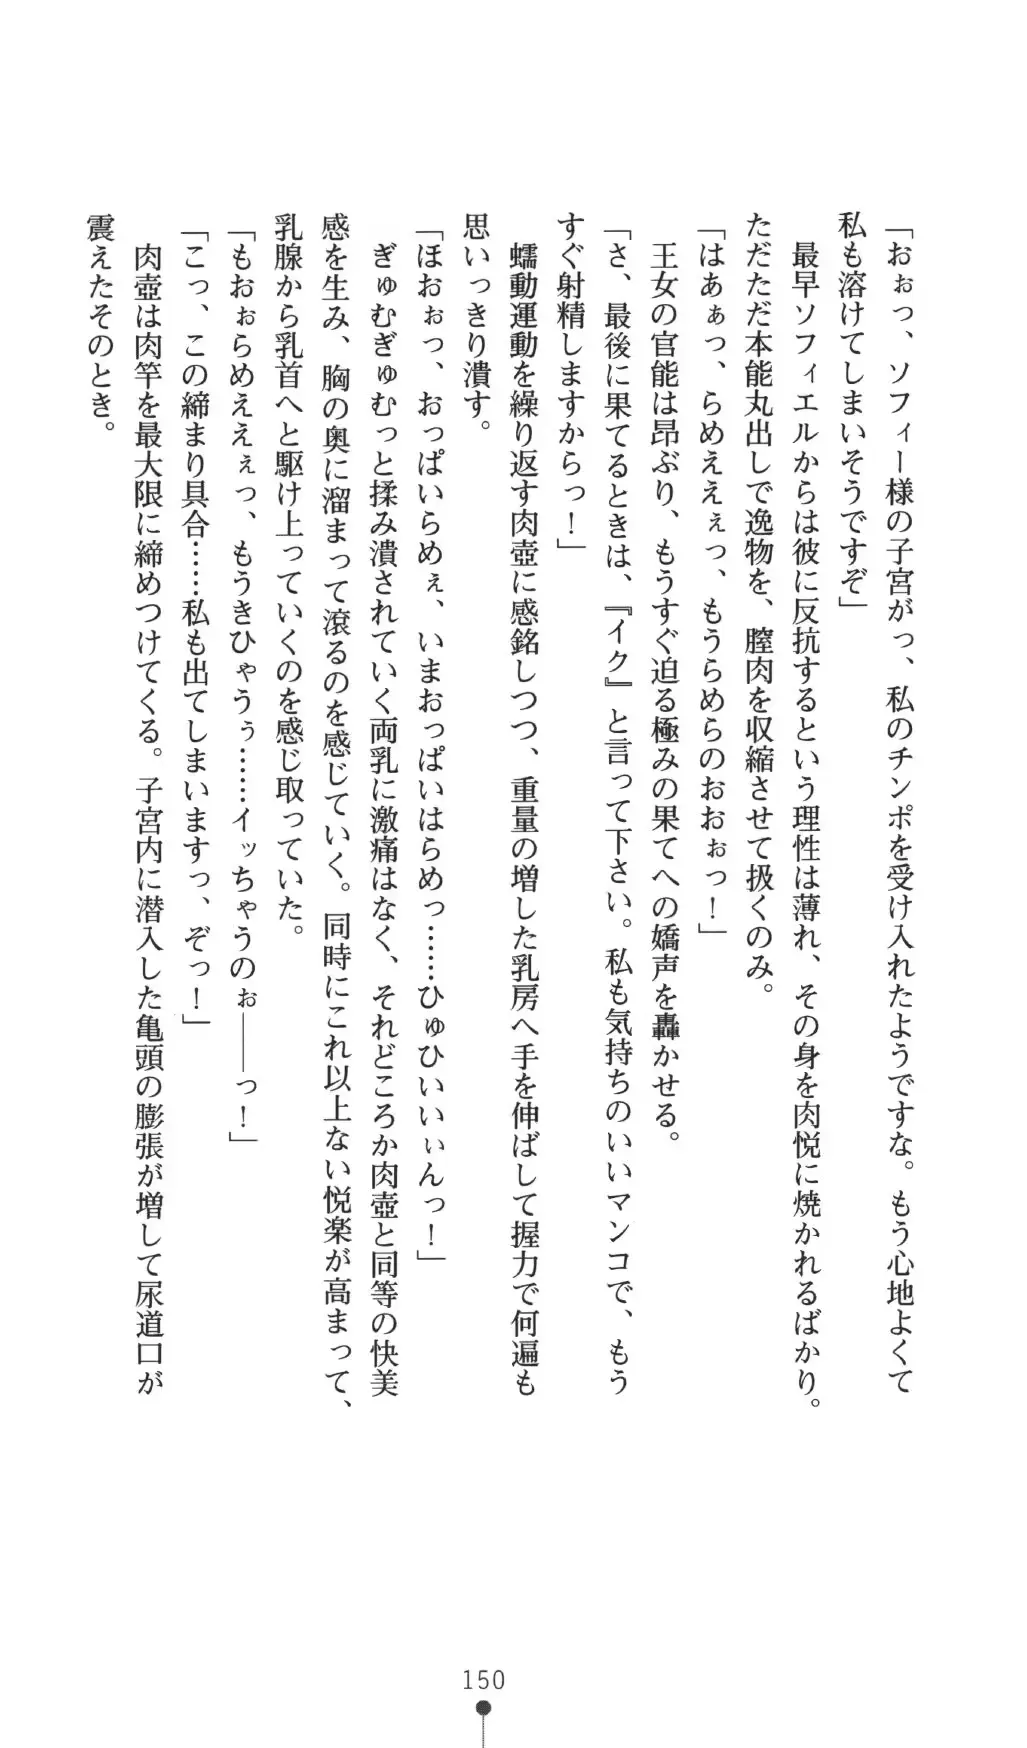 「おぉっ、ソフィー様の子宮がっ、私のチンポを受け入れたようですな。もう心地よくて
私も溶けてしまいそうですぞ」
　最早ソフィエルからは彼に反抗するという理性は薄れ、その身を肉悦に焼かれるばかり。
ただただ本能丸出しで逸物を、膣肉を収縮させて扱くのみ。
「はあぁっ、らめええぇっ、もうらめらのおおぉっ！」
　王女の官能は昂ぶり、もうすぐ迫る極みの果てへの嬌声を轟かせる。
「さ、最後に果てるときは、『イク』と言って下さい。私も気持ちのいいマンコで、もう
すぐ射精しますからっ！」
　蠕動運動を繰り返す肉壺に感銘しつつ、重量の増した乳房へ手を伸ばして握力で何遍も
思いっきり潰す。
「ほおぉっ、おっぱいらめぇ、いまおっぱいはらめっ……ひゅひいいぃんっ！」
　ぎゅむぎゅむっと揉み潰されていく両乳に激痛はなく、それどころか肉壺と同等の快美
感を生み、胸の奥に溜まって滾るのを感じていく。同時にこれ以上ない悦楽が高まって、
乳腺から乳首へと駆け上っていくのを感じ取っていた。
「もおぉらめええぇっ、もうきひゃうぅ……イッちゃうのぉ――っ！」
「こっ、この締まり具合……私も出てしまいますっ、ぞっ！」
　肉壺は肉竿を最大限に締めつけてくる。子宮内に潜入した亀頭の膨張が増して尿道口が
震えたそのとき。
150